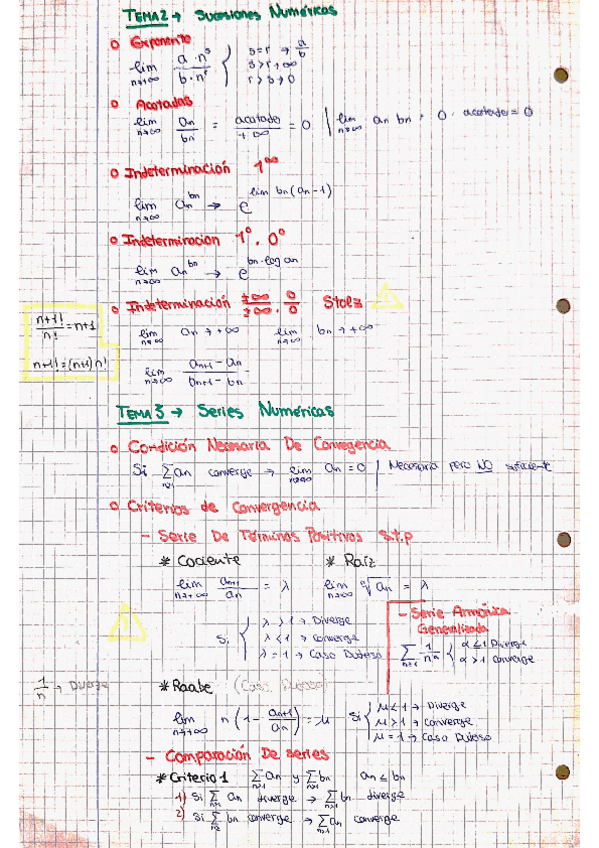 TEMA 2 → Sucesiones Numéricas
o Exponente
lim n→+∞ a·n^s / b·n^r { s=r → a/b
s>r → ∞
r>s → 0
o Acotadas
lim n→∞ an/bn = acotado/+∞ = 0 | lim n→∞ an bn = 0 · acotado = 0
o Indeterminación 1^∞
lim n→∞ an^bn → e^lim bn(an-1)
o Indeterminacion 1^0, 0^0
lim n→∞ an^bn → e^bn·log an
o Indeterminación ±∞/±∞, 0/0 Stolz
n+1!/n! = n+1
n+1! = (n+1) n!
lim n→∞ an → +∞ lim n→∞ bn → +∞
lim n→∞ an+1 - an / bn+1 - bn
TEMA 3 → Series Numéricas
o Condición Necesaria De Convegencia
Si Σ n≥1 an converge → lim n→∞ an = 0 | Necesaria pero NO suficiente
o Criterios de Convergencia
- Serie De Términos Positivos S.t.p
* Cociente * Raíz
lim n→+∞ an+1/an = λ lim n→∞ ⁿ√an = λ
Si { λ > 1 → Diverge
λ < 1 → Converge
λ = 1 → Caso Dudoso
- Serie Armónica
Generalizada
Σ n≥1 1/n^α { α ≤ 1 Diverge
α > 1 converge
1/n → Diverge
* Raabe (Caso Dudoso)
lim n→+∞ n (1 - an+1/an) = μ Si { μ < 1 → Diverge
μ > 1 → Converge
μ = 1 → Caso Dudoso
- Comparación De series
* Criterio 1 Σ n≥1 an y Σ n≥1 bn an ≤ bn
1) Si Σ n≥1 an diverge → Σ n≥1 bn diverge
2) Si Σ bn converge → Σ n≥1 an converge